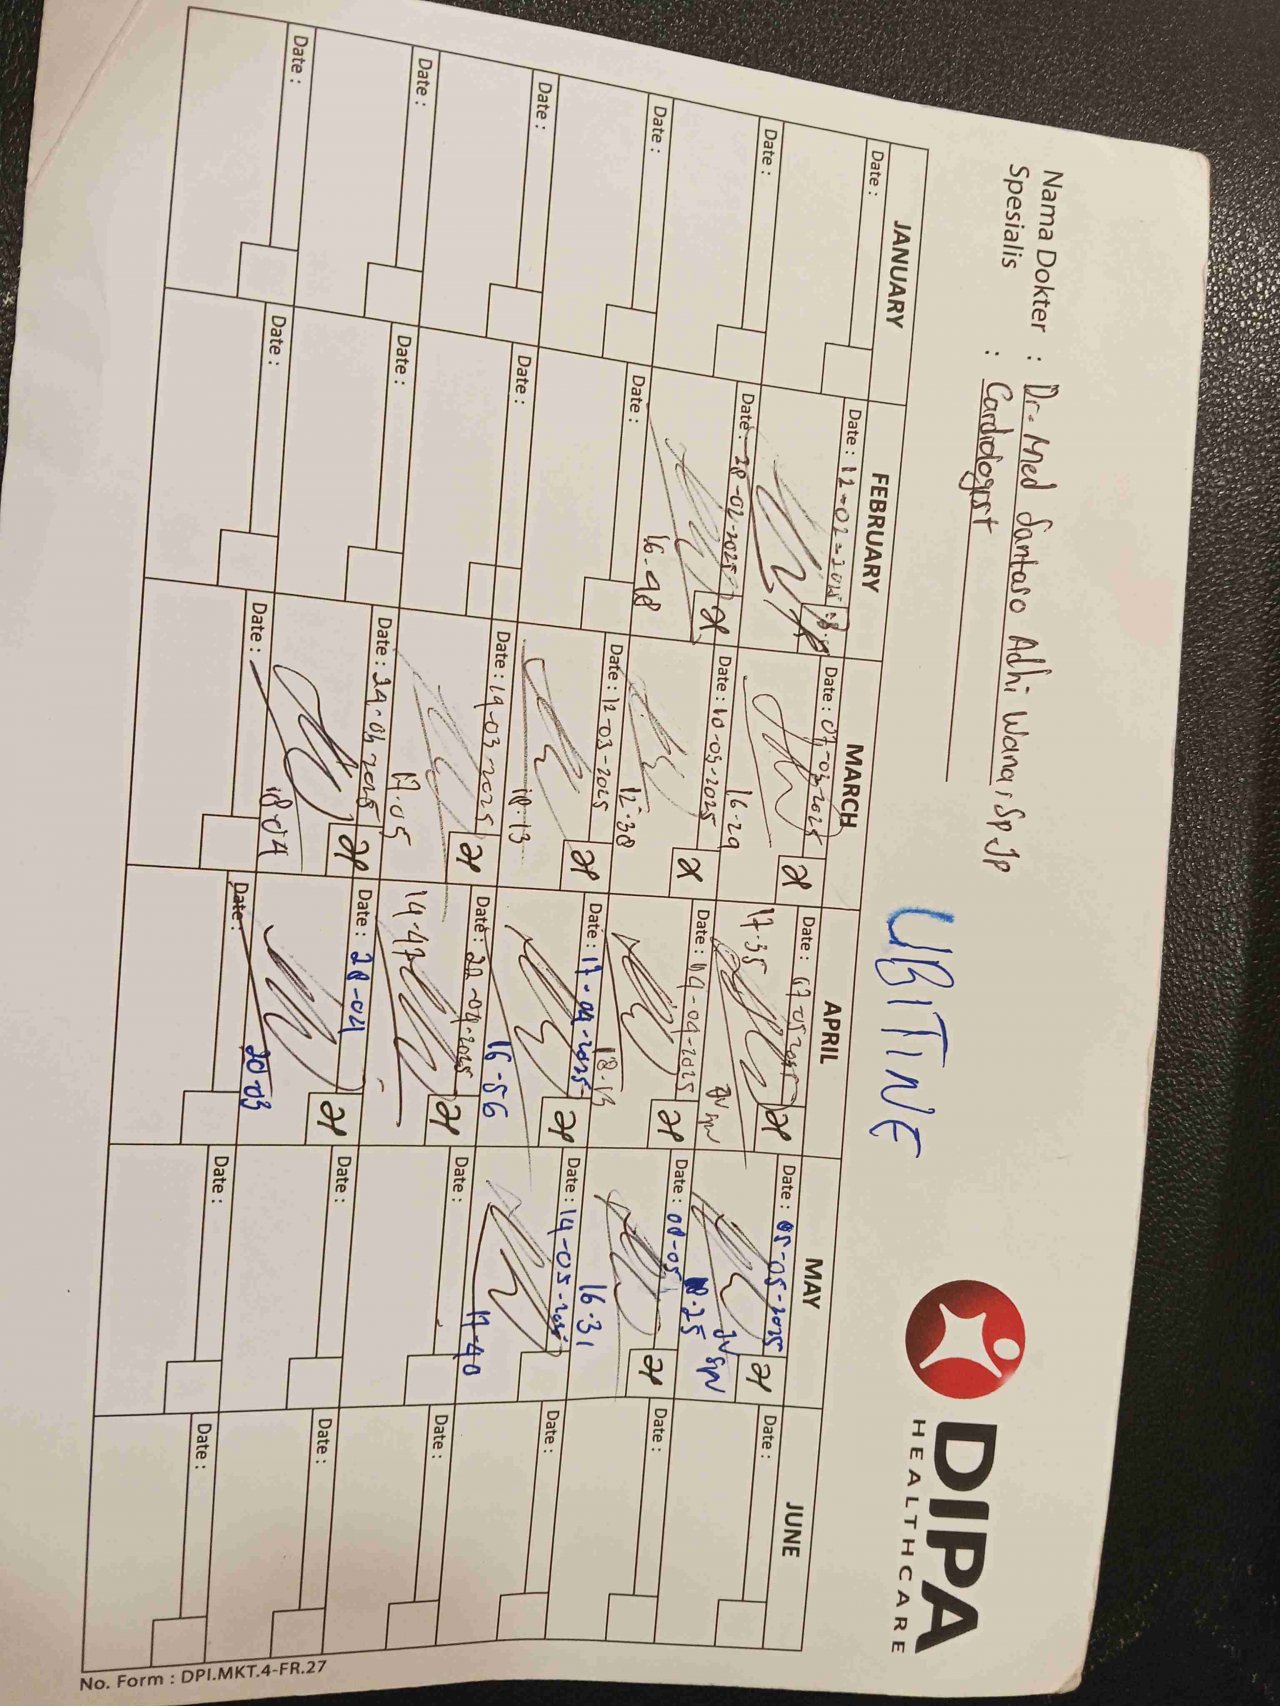 Nama Dokter : Dr. Med Santoso Adhi Wana, SpJP
Spesialis : Cardiologist
UBITINE
DIPA
HEALTHCARE
JANUARY FEBRUARY MARCH APRIL MAY JUNE
Date : Date : 12-02-2025 Date : 07-03-2025 Date : Date : 05-05-2025 Date :
16-29 17-35
Date : Date : 28-02-2025 Date : 10-03-2025 Date : 14-04-2025 Date : 08-05 Date :
16-48 12-38 18-13 16-31
Date : Date : Date : 12-03-2025 Date : 17-04-2025 Date : 14-05- Date :
18-13 16-56 17-40
Date : Date : Date : 19-03-2025 Date : Date : Date :
17.05 14-47
Date : Date : Date : 24-03-2025 Date : 28-04 Date : Date :
18-04 20-03
Date : Date : Date : Date : Date : Date :
No. Form : DPI.MKT.4-FR.27